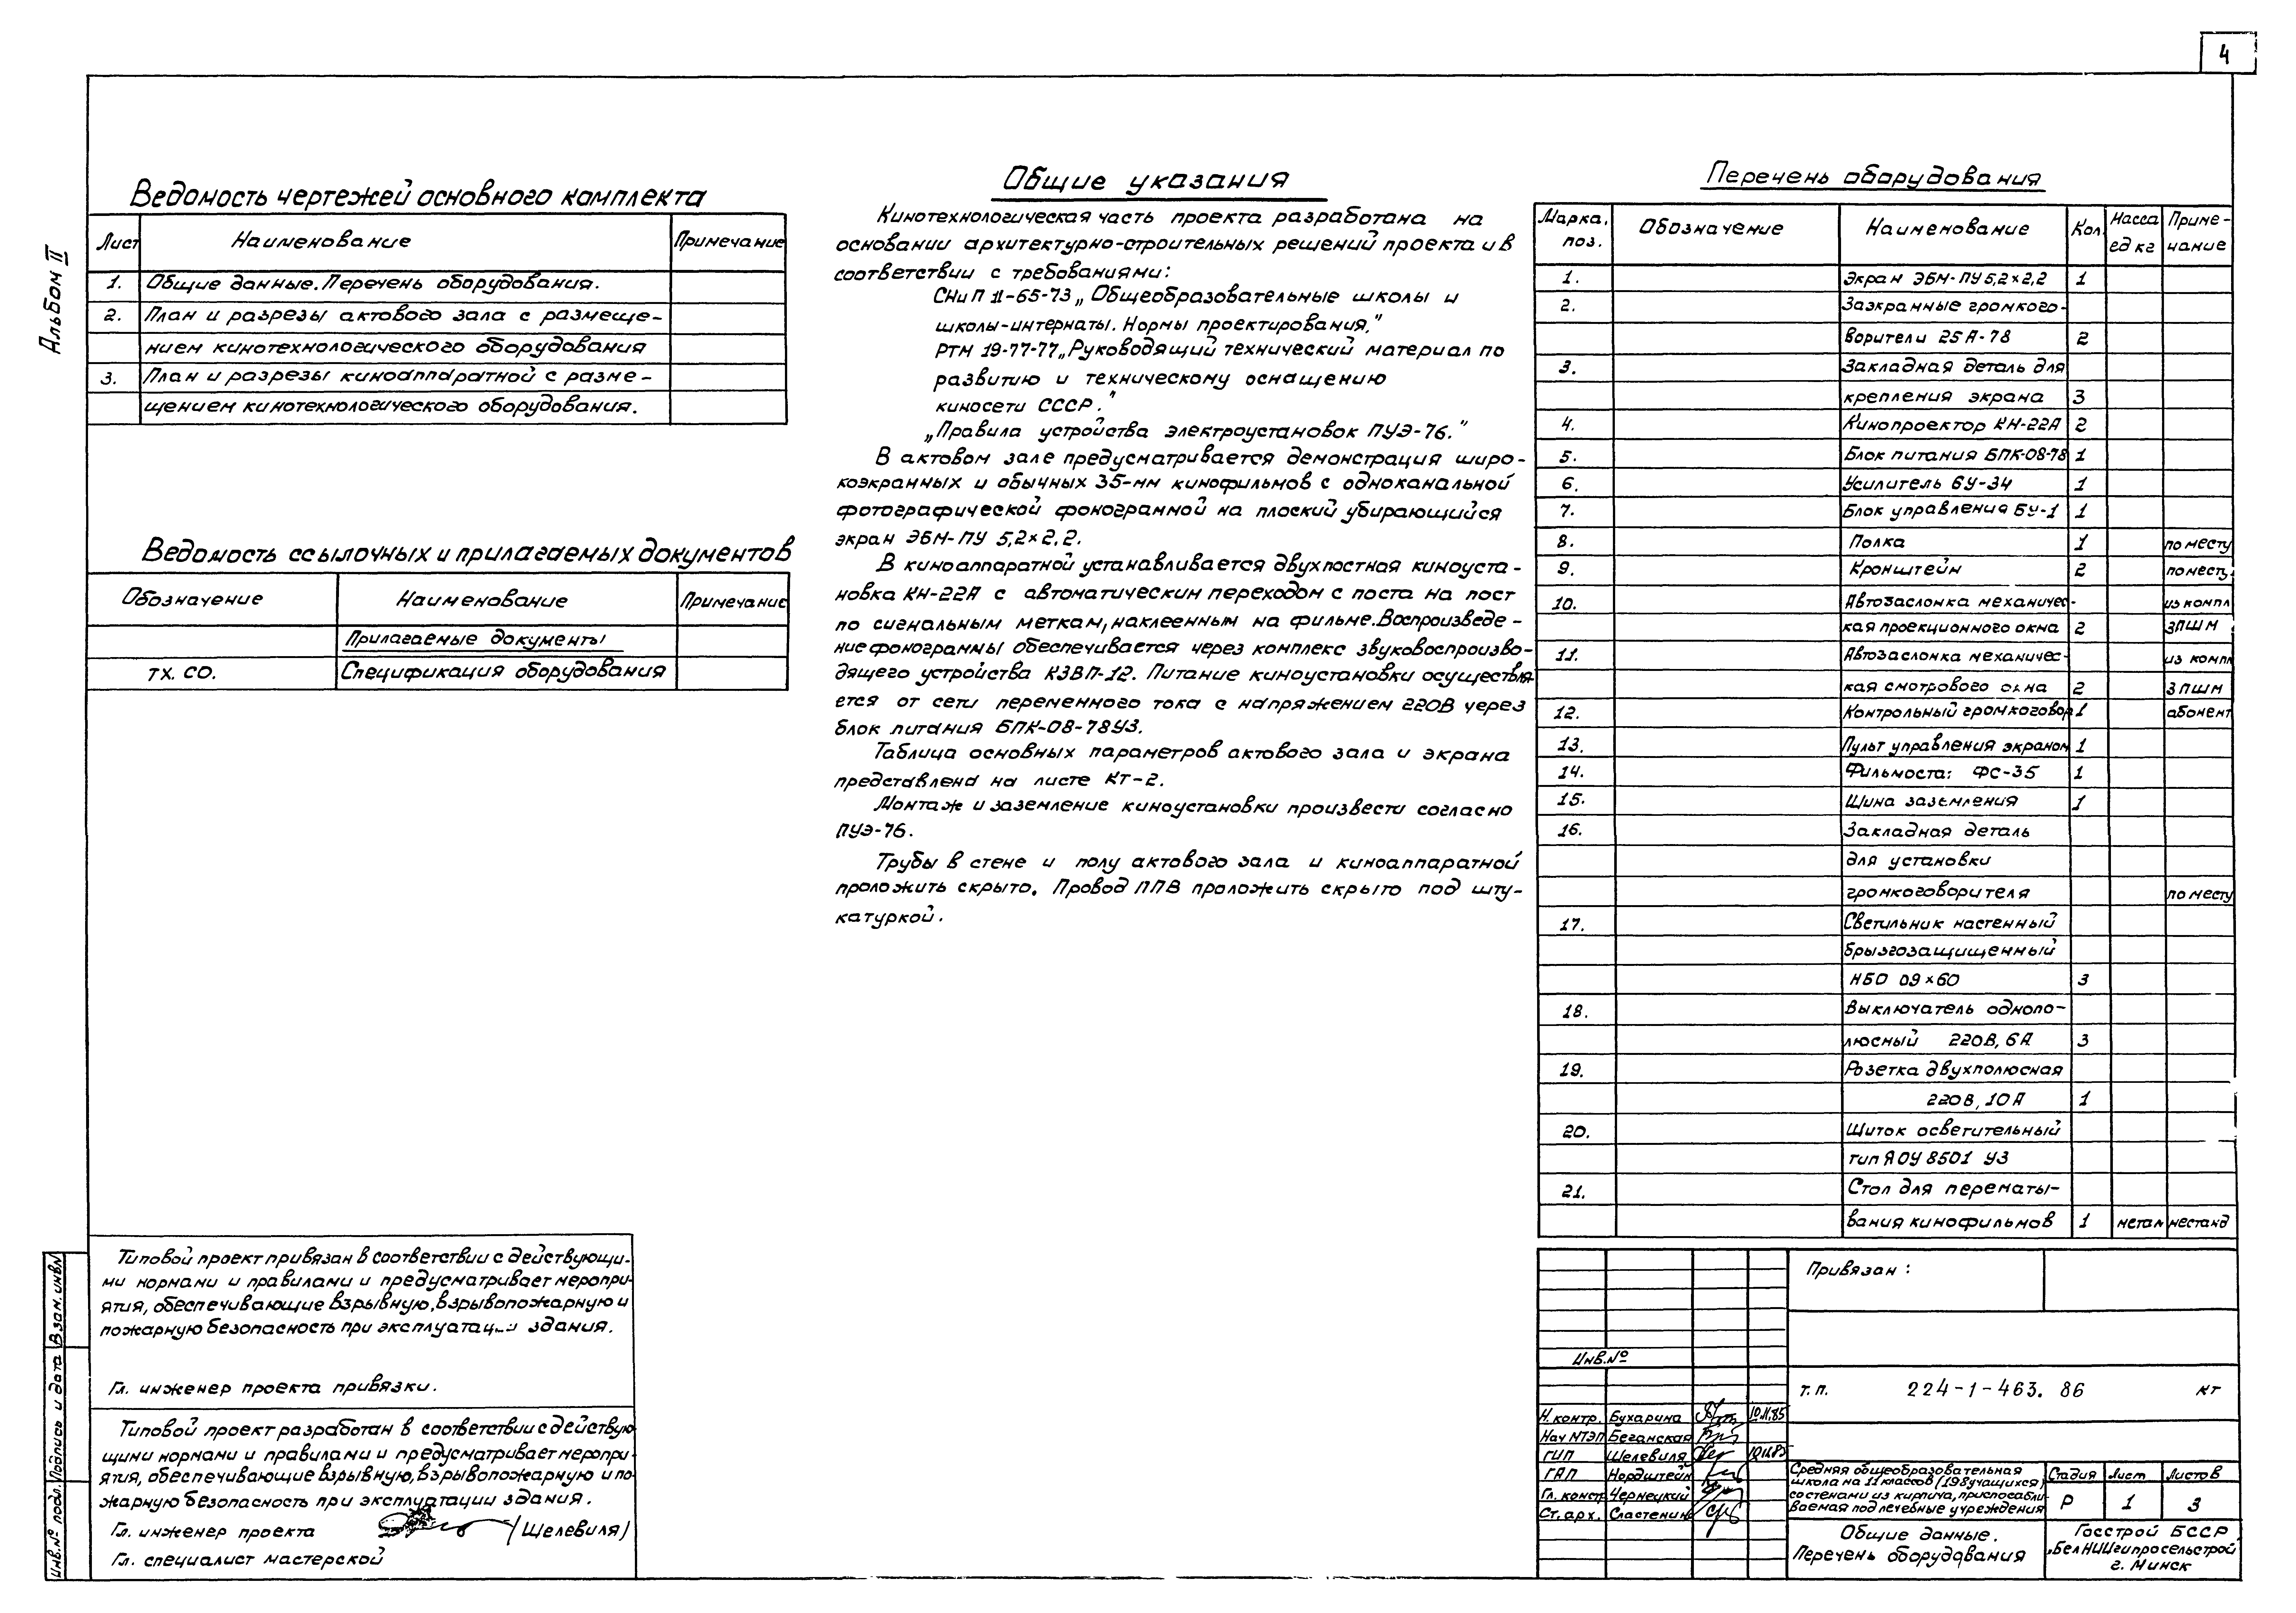 4
Альбом II
Ведомость чертежей основного комплекта
Лист Наименование Примечание
1. Общие данные. Перечень оборудования.
2. План и разрезы актового зала с размеще-
нием кинотехнологического оборудования
3. План и разрезы киноаппаратной с разме-
щением кинотехнологического оборудования.
Ведомость ссылочных и прилагаемых документов
Обозначение Наименование Примечание
Прилагаемые документы
ТХ. СО. Спецификация оборудования
Общие указания
Кинотехнологическая часть проекта разработана на
основании архитектурно-строительных решений проекта и в
соответствии с требованиями:
СНиП II-65-73 „Общеобразовательные школы и
школы-интернаты. Нормы проектирования."
РТМ 19-77-77 „Руководящий технический материал по
развитию и техническому оснащению
киносети СССР."
„Правила устройства электроустановок ПУЭ-76."
В актовом зале предусматривается демонстрация широ-
коэкранных и обычных 35-мм кинофильмов с одноканальной
фотографической фонограммой на плоский убирающийся
экран ЭБМ-ПУ 5,2×2,2.
В киноаппаратной устанавливается двухпостная киноуста-
новка КН-22А с автоматическим переходом с поста на пост
по сигнальным меткам, наклеенным на фильме. Воспроизведе-
ние фонограммы обеспечивается через комплекс звуковоспроизво-
дящего устройства КЗВП-12. Питание киноустановки осуществля-
ется от сети переменного тока с напряжением 220В через
блок питания БПК-08-78У3.
Таблица основных параметров актового зала и экрана
представлена на листе КТ-2.
Монтаж и заземление киноустановки произвести согласно
ПУЭ-76.
Трубы в стене и полу актового зала и киноаппаратной
проложить скрыто. Провод ППВ проложить скрыто под шту-
катуркой.
Перечень оборудования
Марка, поз. Обозначение Наименование Кол. Масса ед кг Приме-чание
1. Экран ЭБМ-ПУ 5,2×2,2 1
2. Заэкранные громкого-
ворители 25А-78 2
3. Закладная деталь для
крепления экрана 3
4. Кинопроектор КН-22А 2
5. Блок питания БПК-08-78 1
6. Усилитель 6У-34 1
7. Блок управления БУ-1 1
8. Полка 1 по месту
9. Кронштейн 2 по месту.
10. Автозаслонка механичес- из компл
кая проекционного окна 2 ЗПШМ
11. Автозаслонка механичес- из компл
кая смотрового окна 2 ЗПШМ
12. Контрольный громкоговор 1 абонент
13. Пульт управления экраном 1
14. Фильмоста: ФС-35 1
15. Шина заземления 1
16. Закладная деталь
для установки
громкоговорителя по месту
17. Светильник настенный
брызгозащищенный
НБО 09×60 3
18. Выключатель однопо-
люсный 220В, 6А 3
19. Розетка двухполюсная
220В, 10А 1
20. Щиток осветительный
тип ЯОУ 8501 У3
21. Стол для перематы-
вания кинофильмов 1 метал нестанд
Типовой проект привязан в соответствии с действующи-
ми нормами и правилами и предусматривает меропри-
ятия, обеспечивающие взрывную, взрывопожарную и
пожарную безопасность при эксплуатации здания.
Гл. инженер проекта привязки.
Типовой проект разработан в соответствии с действую
щими нормами и правилами и предусматривает меропри-
ятия, обеспечивающие взрывную, взрывопожарную и по-
жарную безопасность при эксплуатации здания.
Гл. инженер проекта (Шелевиля)
Гл. специалист мастерской
Инв.№ подл. Подпись и дата Взам. инв№
Привязан:
Инв.№
т.п. 224-1-463. 86 КТ
Н. контр. Бухарина 10.11.85
Нач НТЭП Беганская
ГИП Шелевиля
ГАП Нордштейн
Гл. констр Чернецкий
Ст. арх. Сластенин
Средняя общеобразовательная
школа на 11 классов (198 учащихся)
со стенами из кирпича, приспосабли-
ваемая под лечебные учреждения
Стадия Лист Листов
Р 1 3
Общие данные.
Перечень оборудования
Госстрой БССР
„БелНИИгипросельстрой"
г. Минск